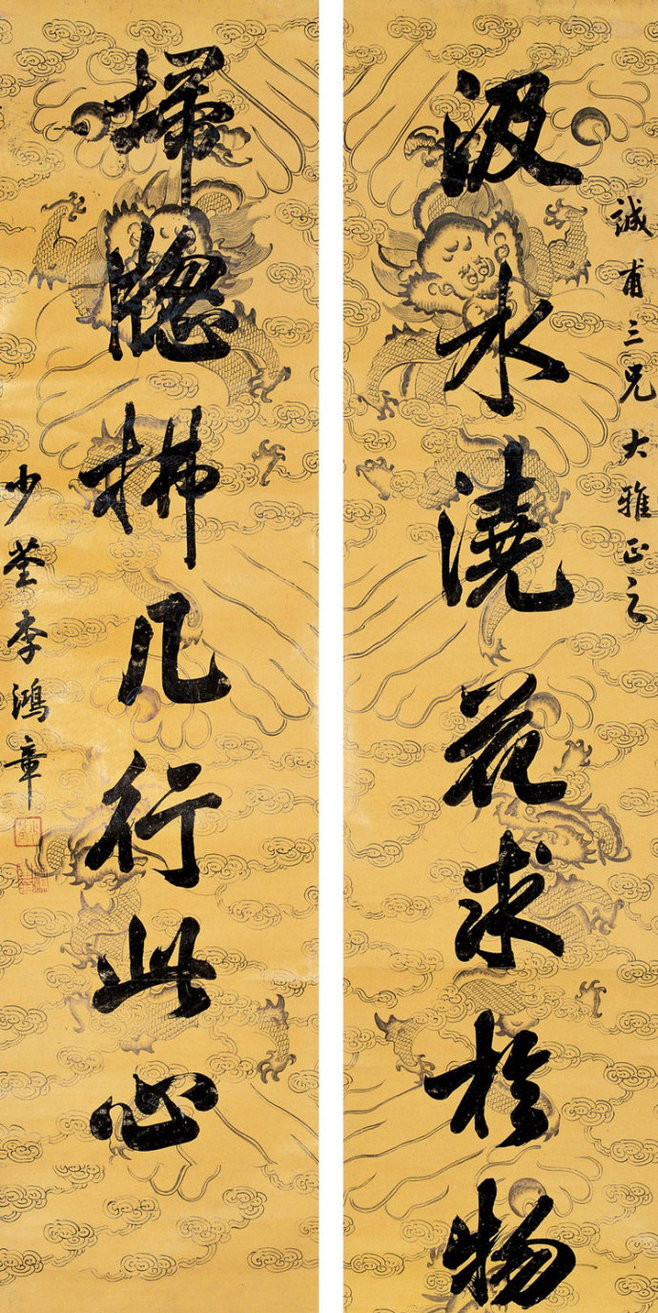 誠甫三兄大雅正之
汲水澆花求於物
掃牕拂几行此心
少荃李鴻章